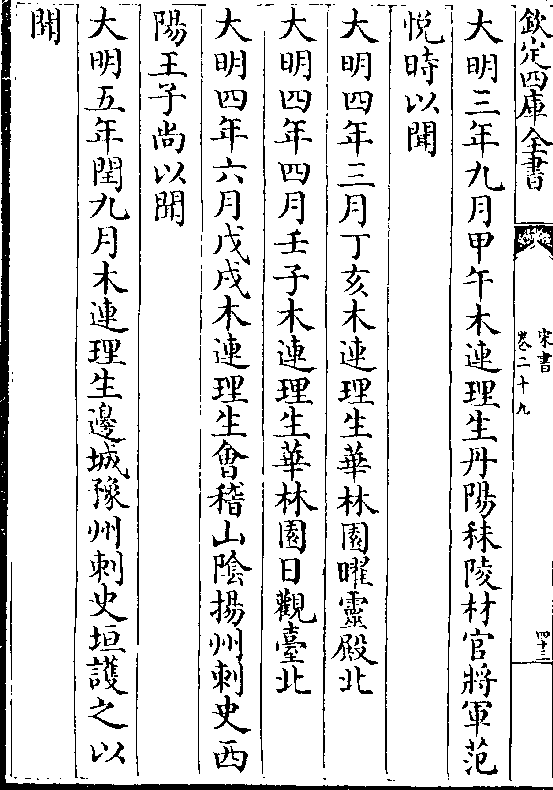 欽定四庫全書
宋書
卷二十九
四十三
大明三年九月甲午木連理生丹陽秣陵材官將軍范
悅時以聞
大明四年三月丁亥木連理生華林園曜靈殿北
大明四年四月壬子木連理生華林園日觀臺北
大明四年六月戊戌木連理生會稽山陰揚州刺史西
陽王子尚以聞
大明五年閏九月木連理生邊城豫州刺史垣護之以
聞